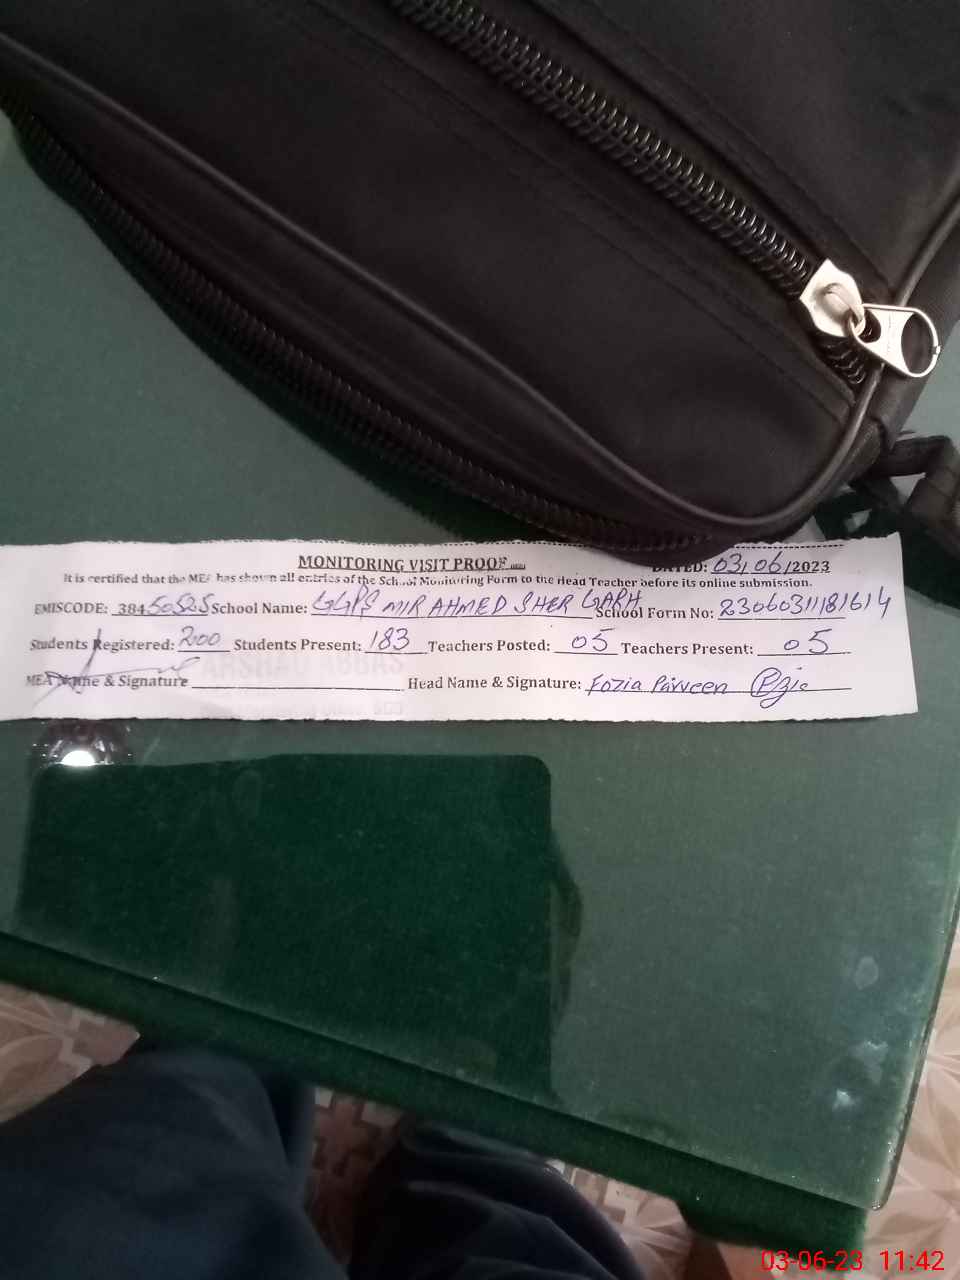 MONITORING VISIT PROOF DATED: 03/06/2023
It is certified that the MEA has shown all entries of the School Monitoring Form to the Head Teacher before its online submission.
EMISCODE: 38450525 School Name: GGPS MIR AHMED SHER GARH School Form No: 23060311181614
Students Registered: 200 Students Present: 183 Teachers Posted: 05 Teachers Present: 05
ARSHAD ABBAS
MEA Name & Signature Head Name & Signature: Fozia Parveen
03-06-23 11:42